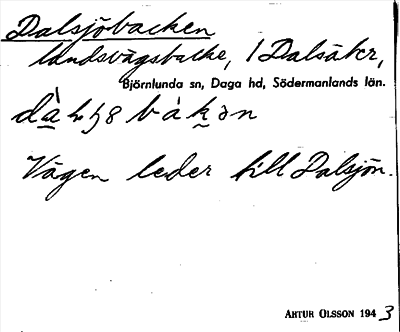 Dalsjöbacken
landsvägsbacke, / Dalsåkr,
Björnlunda sn, Daga hd, Södermanlands län.
Vägen leder till Dalsjön.
ARTUR OLSSON 1943